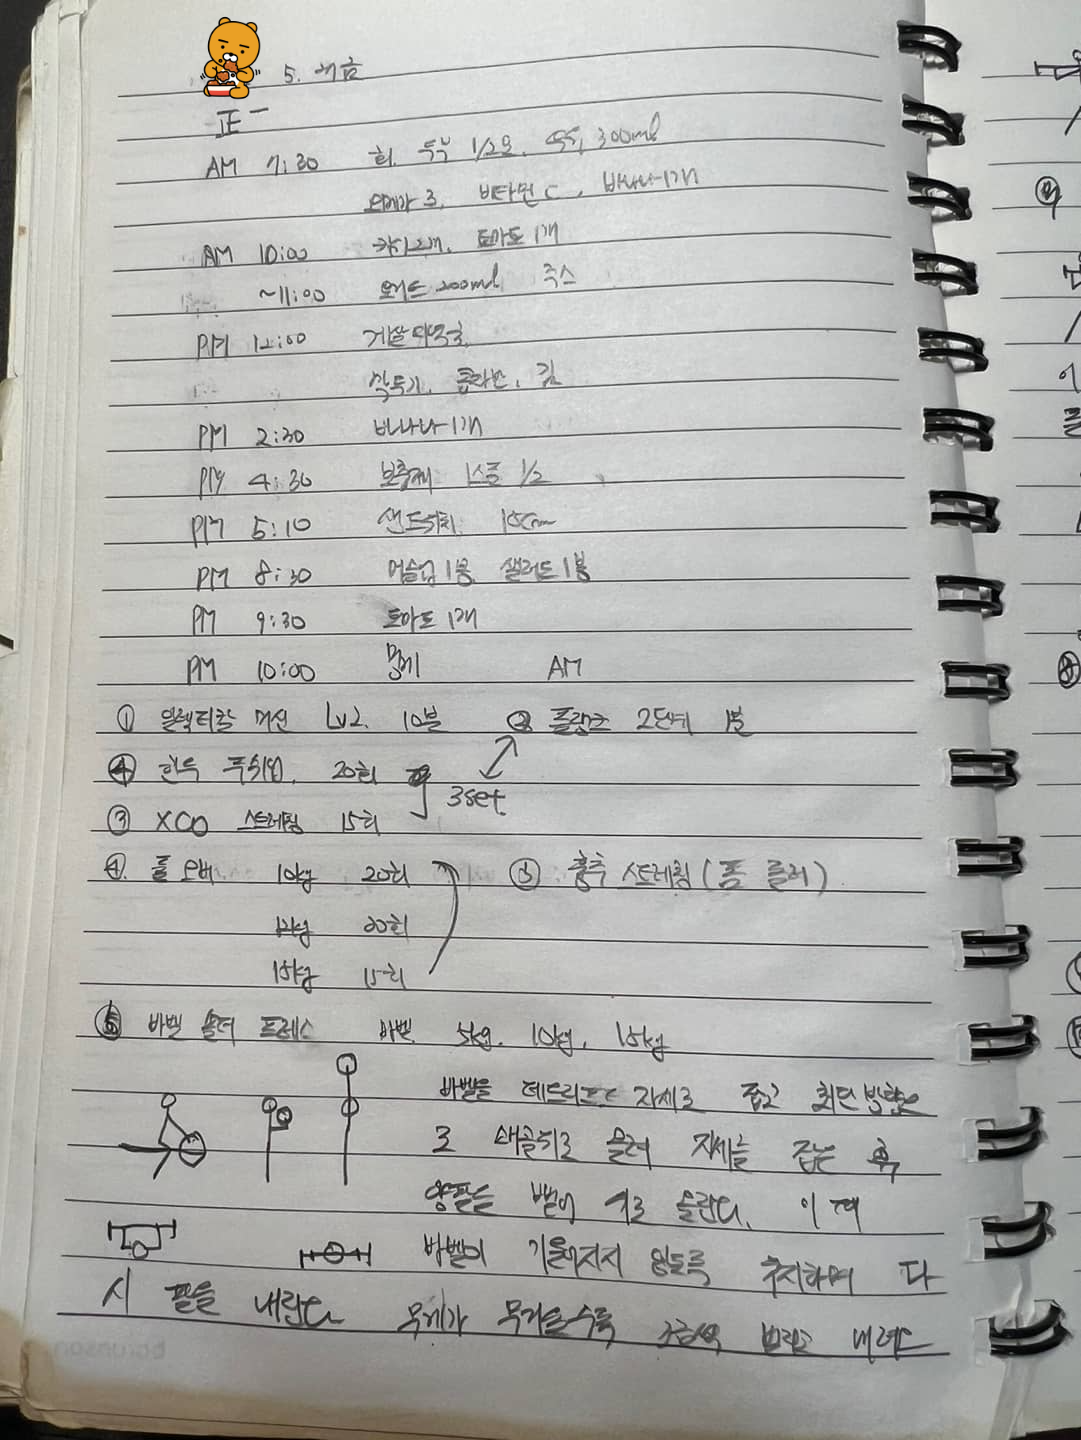 5.
正一
AM 7:30 회, 두부 1/2모, 300ml
오메가 3, 비타민 C, 바나나 1개
AM 10:00 토마토 1개
~11:00 200ml 주스
PM 12:00 게살미역국,
깍두기, 김
PM 2:30 바나나 1개
PM 4:30 보충제 1스쿱 1/2
PM 5:10 샌드위치 15cm
PM 8:30 머슬업 1봉, 샐러드 1봉
PM 9:30 토마토 1개
PM 10:00 멍게 AM
① 일렉티칼 머신 Lv2. 10분 ② 플랭크 2단계 1분
④ 한득 푸쉬업, 20회
3set
③ XCO 스트레칭 15회
④. 풀 오버 10kg 20회 ③. 흉추 스트레칭 (폼 롤러)
12kg 20회
15kg 15회
⑤ 바벨 숄더 프레스 바벨 5kg, 10kg, 15kg
바벨을 데드리프트 자세로 잡고 회단 방향으
로 쇄골위로 올려 자세를 잡는 후
양팔을 뻗어 위로 올린다. 이 때
바벨이 기울어지지 않도록 주의하며 다
시 팔을 내린다 무게가 무거울수록